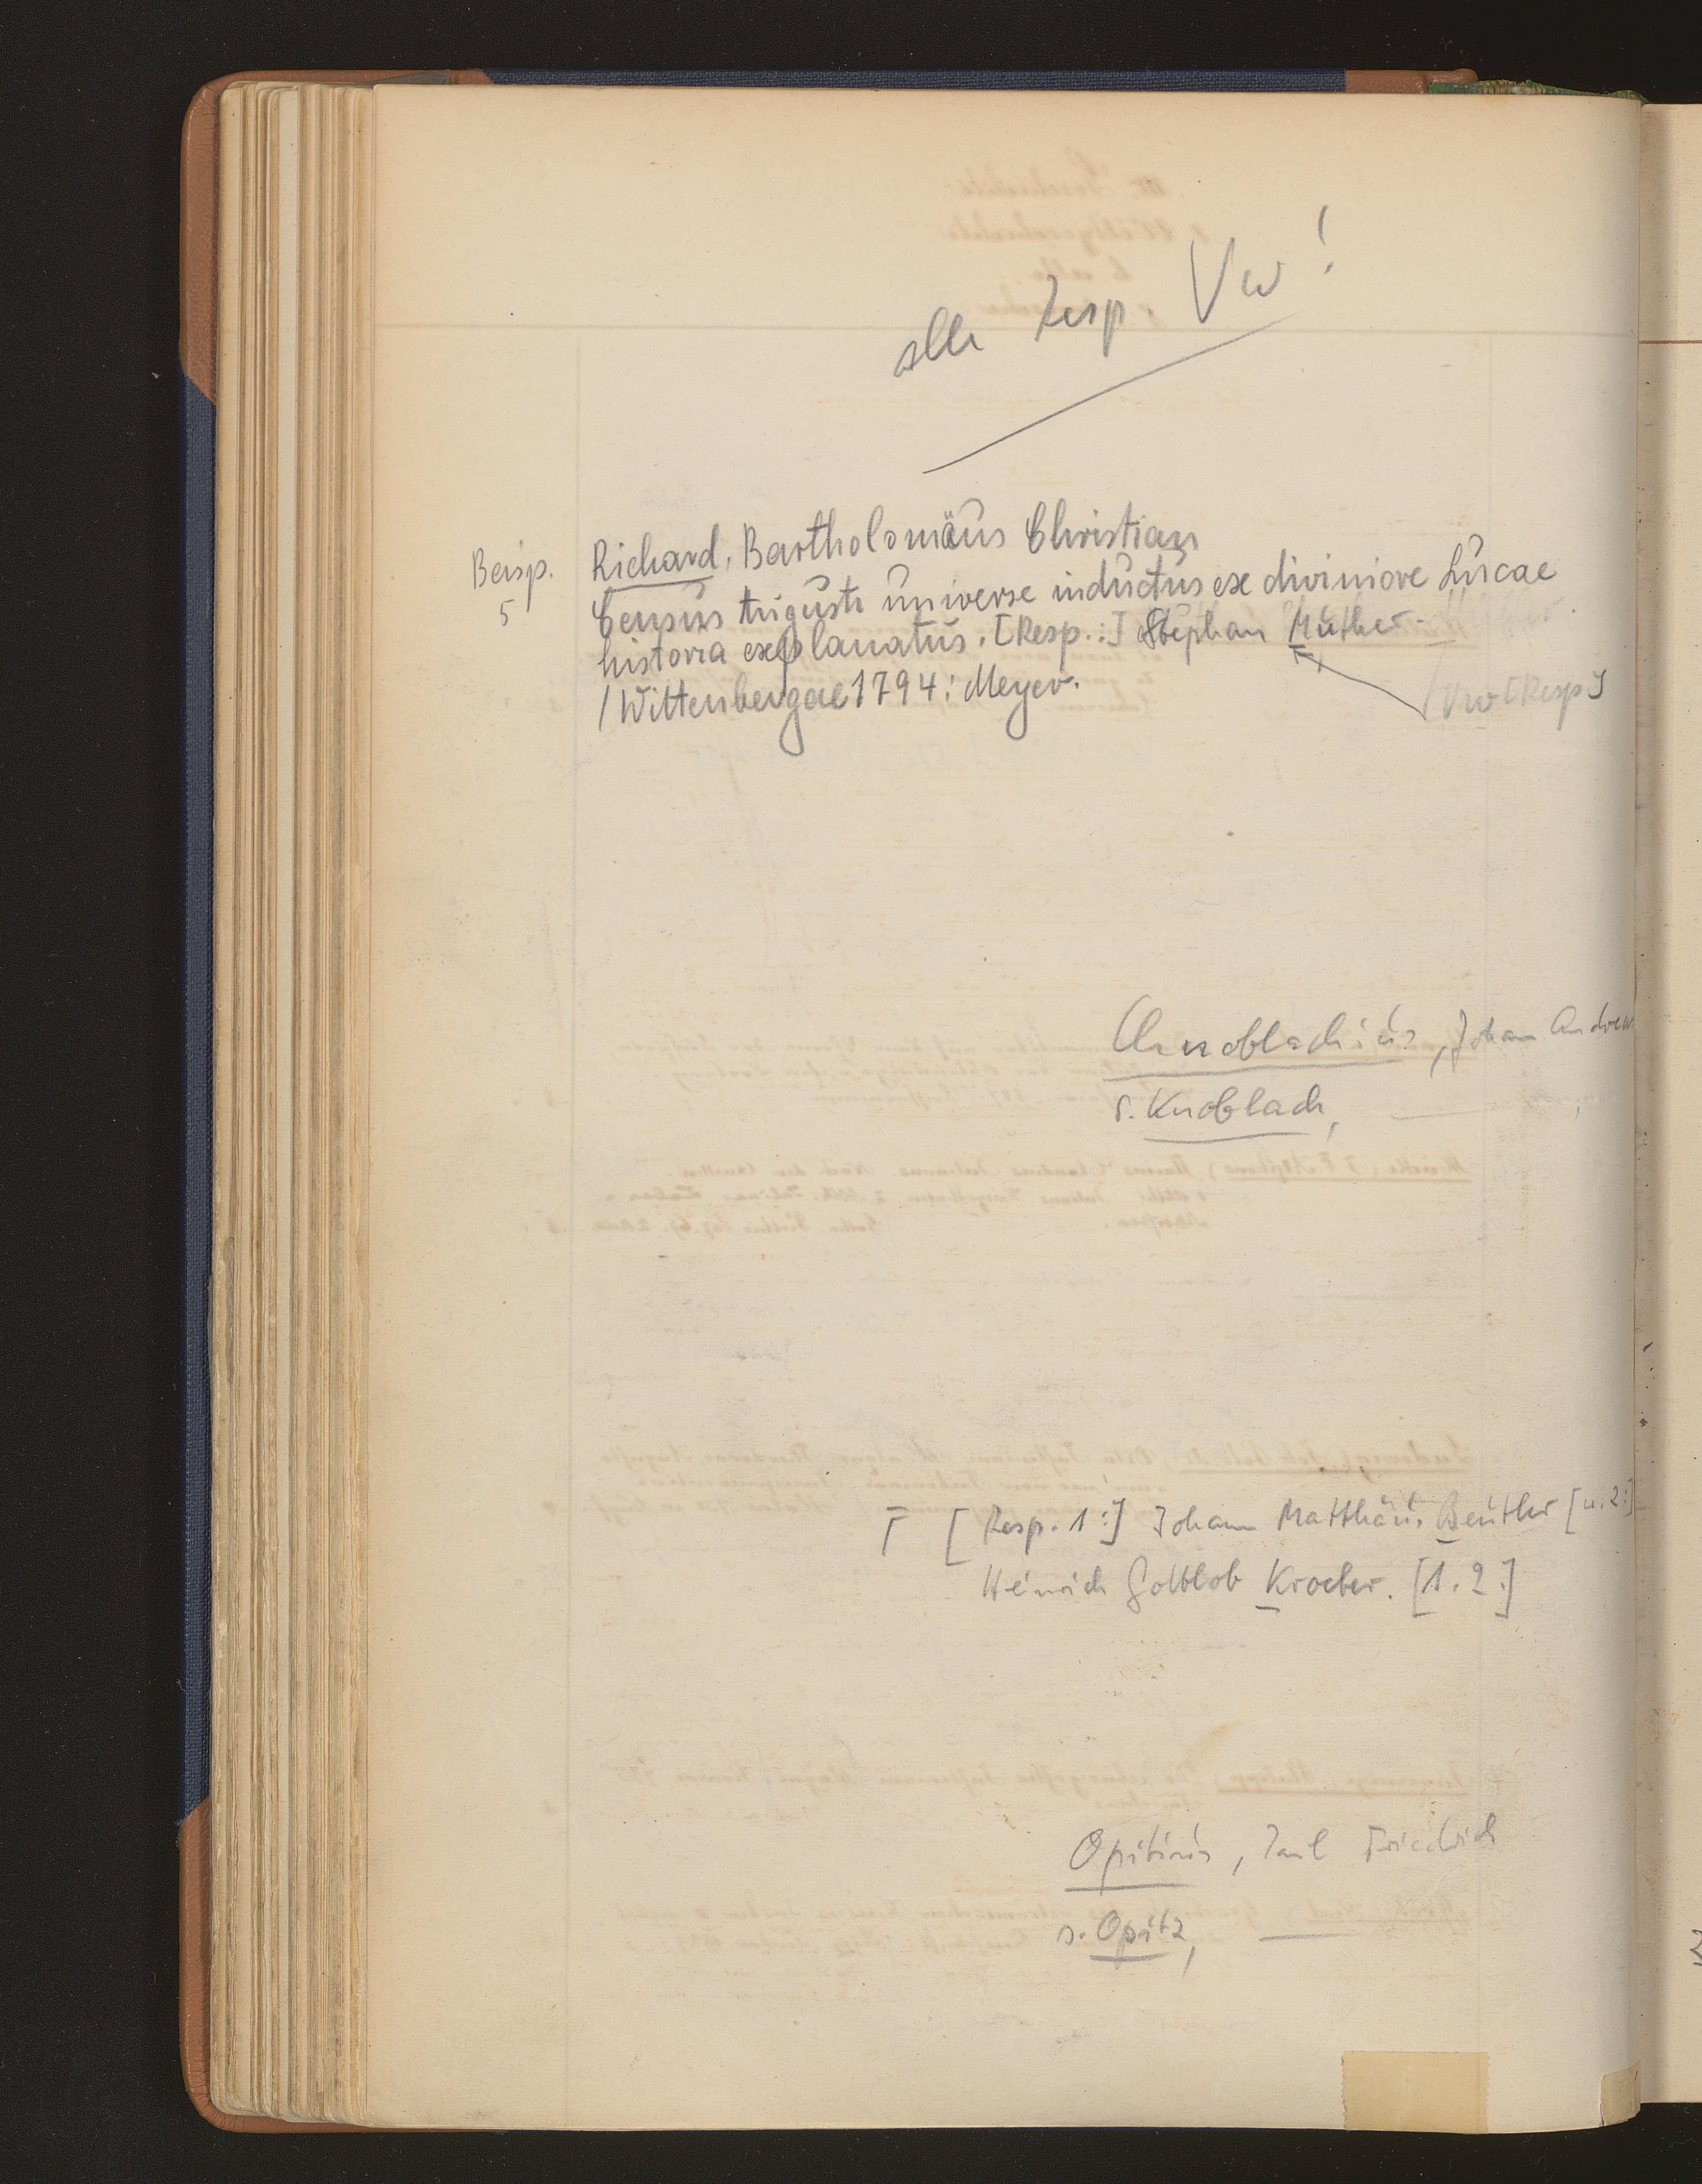 alle Resp. Vw!
Beisp.
5
Richard, Bartholomäus Christian
Census Augusti universe inductus ex diviniore Lucae
historia explanatus. [Resp.:] Stephan Müther.
/ Wittenbergae 1794: Meyer.
/Vw [Resp]
Cnoblachius, Johann Andreas
s. Knoblach,
Γ [Resp. 1:] Johann Matthäus Beutler [u. 2:]
Heinrich Gottlob Krocher. [1. 2.]
Opitius, Paul Friedrich
s. Opitz,